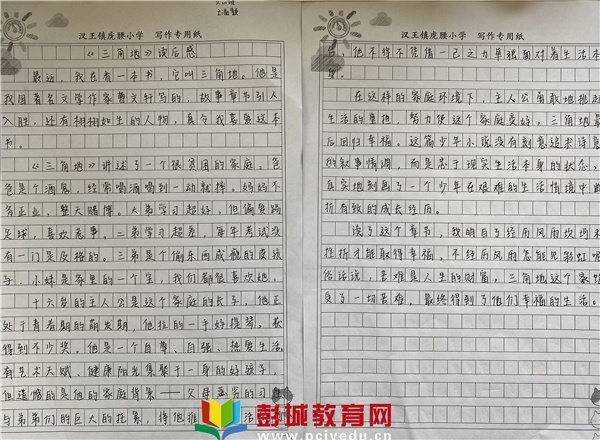 汉王镇虎腰小学 写作专用纸
《三角地》读后感
最近,我在看一本书,它叫三角地。他是
我国著名文学作家曹文轩写的,故事章节引人
入胜,还有栩栩如生的人物,真令我喜爱这本
书。
《三角地》讲述了一个很贫困的家庭。爸
爸是个酒鬼,经常喝酒喝到一动就摔。妈妈不
务正业,整天赌博。大弟学习超好,但偏爱踢
足球,喜欢惹事。二弟学习超差,每年考试没
有一门是及格的。三弟是个偷东西成瘾的皮孩
子,小妹是家里的一个宝,我们都很喜欢她。
十六岁的主人公是这个家庭的长子,他正
处于青春期的萌发期,他拉的一手好提琴,获
得到不少奖。他是一个自尊、自强、热爱生活、
有艺术天赋、健康阳光集聚于一身的好孩子,
但遗憾的是他的家庭背景——父母恶劣的习
与弟弟们的巨大的拖累,将他推 活
汉王镇虎腰小学 写作专用纸
台,他不得不凭借一己之力单独面对着生活本
身。
在这样的家庭环境下,主人公勇敢地挑起
生活的重担,努力使这个家庭变好,三角地最
后回归幸福。这篇少年小说没有刻意追求诗意
的叙事情调,而是忠于现实生活本身的状态,
真实地刻画了一个少年在艰难的生活情境中曲
折有致的成长经历。
读了这个章节,我明白了经历风雨坎坷和
挫折才能取得幸福,不经历风雨怎能见彩虹呢
俗话说,苦难是人生的财富,三角地这个家
受了一切苦难,最终得到了他们幸福的生活。
彭城教育网
www.pcjyedu.cn